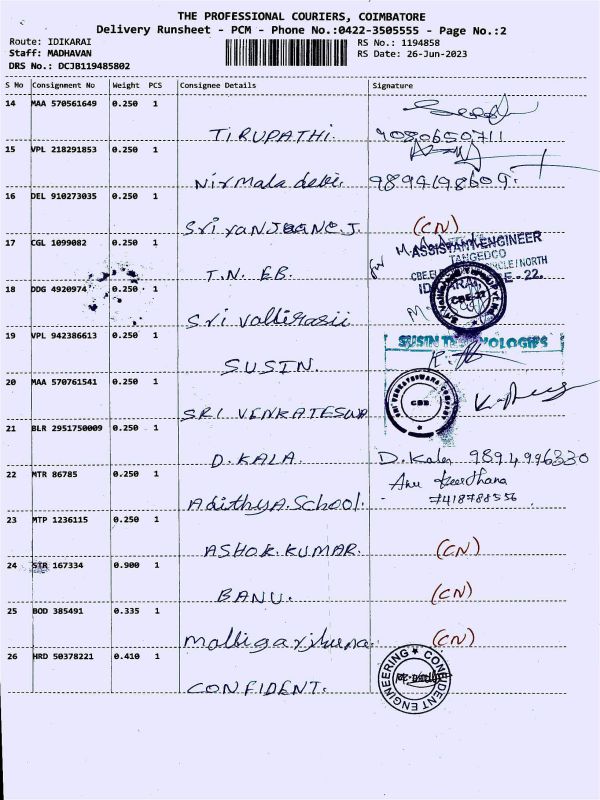 THE PROFESSIONAL COURIERS, COIMBATORE
Delivery Runsheet - PCM - Phone No.:0422-3505555 - Page No.:2
Route: IDIKARAI RS No.: 1194858
Staff: MADHAVAN RS Date: 26-Jun-2023
DRS No.: DCJB119485802
S No Consignment No Weight PCS Consignee Details Signature
14 MAA 570561649 0.250 1
TIRUPATHI. 9080650711
15 VPL 218291853 0.250 1
Nirmala devi. 9894198609
16 DEL 910273035 0.250 1
(CN)
17 CGL 1099082 0.250 1 for
ASSISTANT ENGINEER
TANGEDCO
T.N. EB. NORTH
18 DDG 4920974 0.250 1
CBE-27
Sri
19 VPL 942386613 0.250 1
SUSIN TECHNOLOGIES
SUSIN.
20 MAA 570761541 0.250 1
SRI VENKATESWARA COMPANY
CBE.
SRI VENKATESWA
21 BLR 2951750009 0.250 1
D. KALA. D. Kala 9894996330
22 MTR 86785 0.250 1 Anu Keerthana
Adithya. School. 7418788556
23 MTP 1236115 0.250 1
ASHOK. KUMAR. (CN)
24 STR 167334 0.900 1
BANU. (CN)
25 BOD 385491 0.335 1
(CN)
26 HRD 50378221 0.410 1
CONFIDENT ENGINEERING
CONFIDENT.